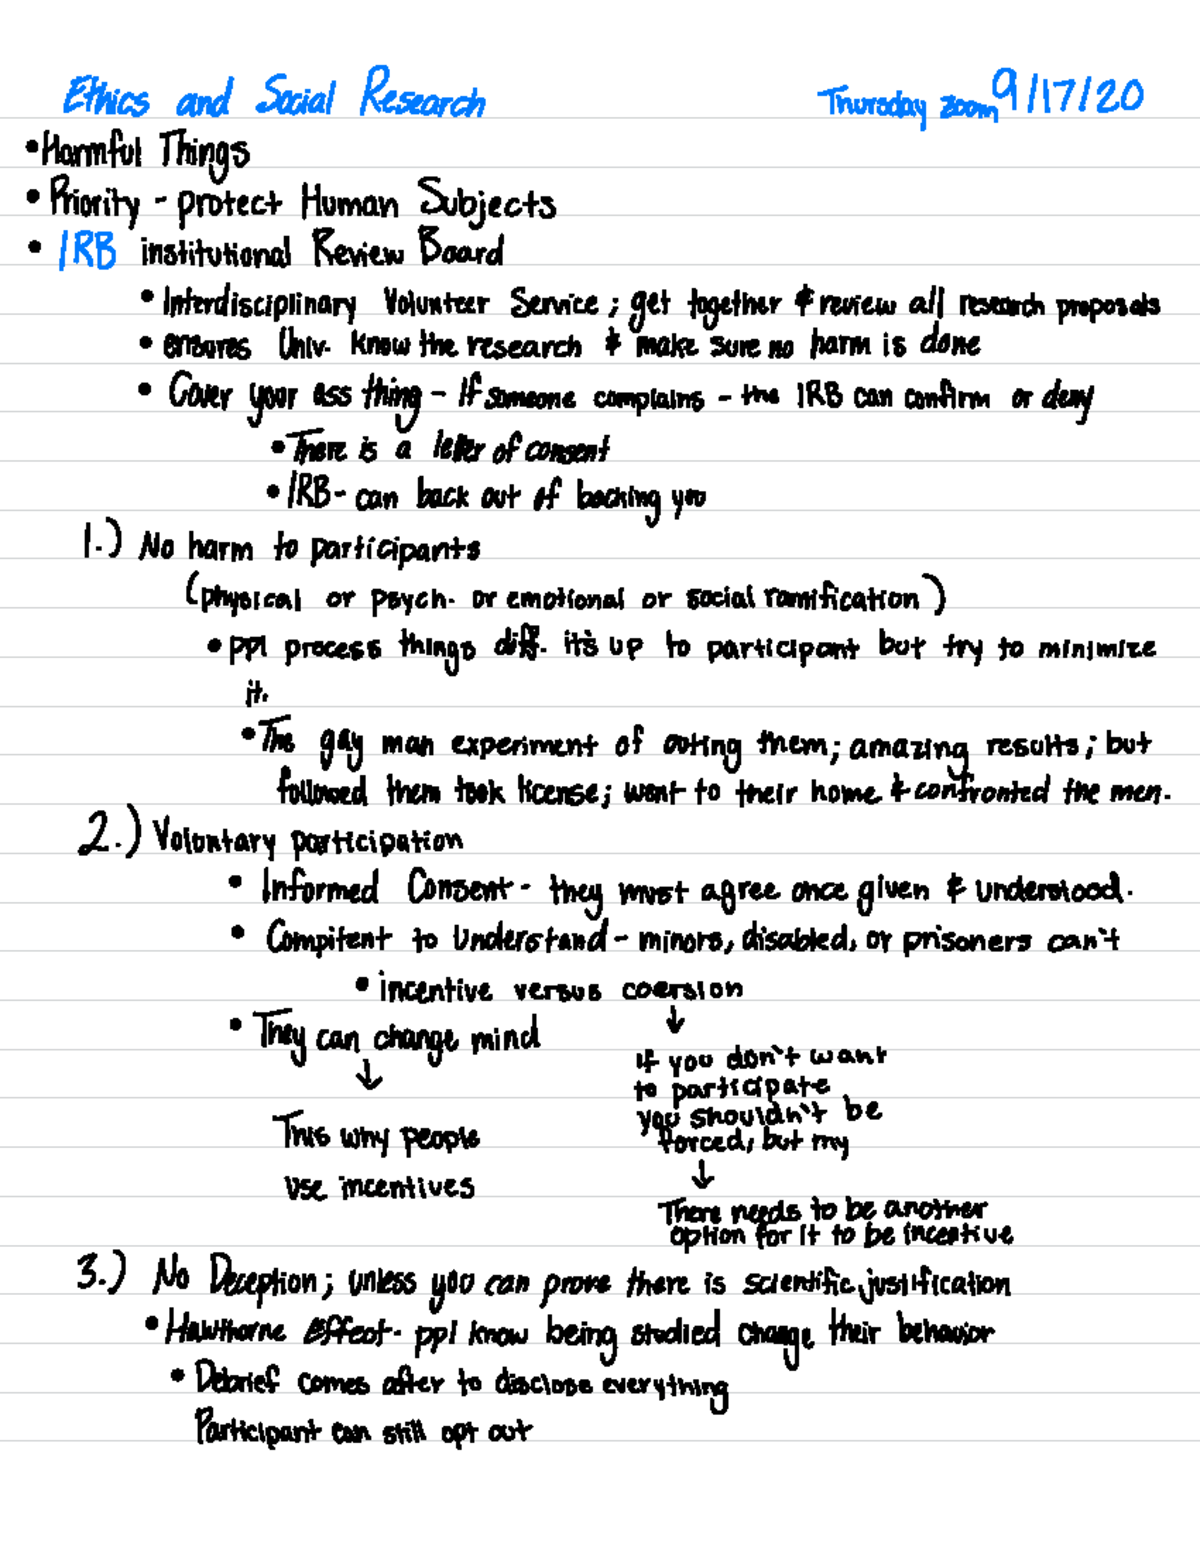 Ethics and Social Research Thursday zoom 9/17/20
• Harmful Things
• Priority - protect Human Subjects
• IRB institutional Review Board
• Interdisciplinary Volunteer Service; get together & review all research proposals
• ensures Univ. Know the research & make sure no harm is done
• Cover your ass thing - If someone complains - the IRB can confirm or deny
• There is a letter of consent
• IRB - can back out of backing you
1.) No harm to participants
(physical or psych. or emotional or social ramification)
• ppl process things diff. it's up to participant but try to minimize
it.
• The gay man experiment of outing them; amazing results; but
followed them took license; went to their home & confronted the men.
2.) Voluntary participation
• Informed Consent - they must agree once given & understood.
• Compitent to Understand - minors, disabled, or prisoners can't
• incentive versus coersion
• They can change mind
↓
This why people
use incentives
↓
If you don't want
to participate
you shouldn't be
forced, but my
↓
There needs to be another
option for it to be incentive
3.) No Deception; unless you can prove there is scientific justification
• Hawthorne Effect - ppl know being studied change their behavior
• Debrief comes after to disclose everything
Participant can still opt out